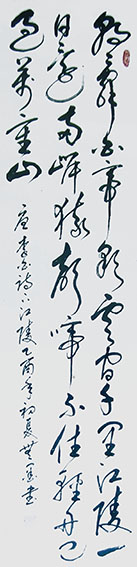 朝辞白帝彩云间千里江陵一
日还两岸猿声啼不住轻舟已
过万重山
唐李白诗下江陵乙酉年初夏